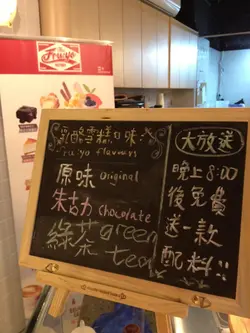 Fro.yo
乳酪雪糕口味
Fro.yo flavours
原味 original
朱古力 chocolate
綠茶 green tea
大放送
晚上8:00
後免費
送一款
配料!!